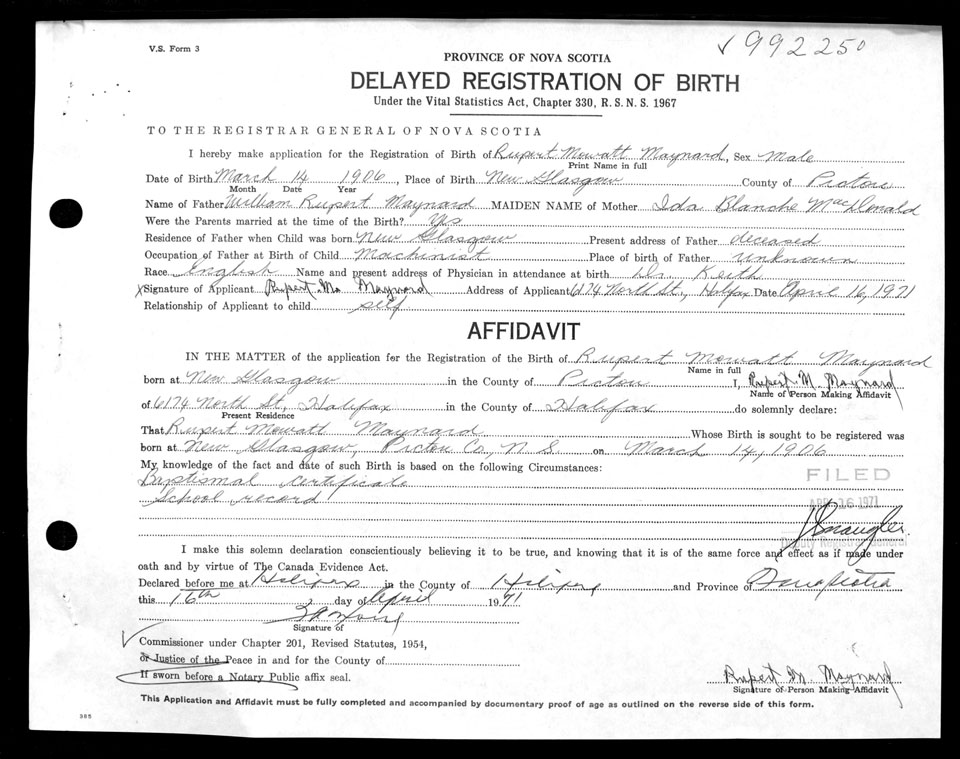 V.S. Form 3
✓ 992250
PROVINCE OF NOVA SCOTIA
DELAYED REGISTRATION OF BIRTH
Under the Vital Statistics Act, Chapter 330, R. S. N. S. 1967
TO THE REGISTRAR GENERAL OF NOVA SCOTIA
I hereby make application for the Registration of Birth of Rupert Mowatt Maynard, Sex Male
Print Name in full
Date of Birth March 14 1906, Place of Birth New Glasgow County of Pictou
Month Date Year
Name of Father William Rupert Maynard MAIDEN NAME of Mother Ida Blanche MacDonald
Were the Parents married at the time of the Birth? Yes
Residence of Father when Child was born New Glasgow Present address of Father deceased
Occupation of Father at Birth of Child Machinist Place of birth of Father Unknown
Race English Name and present address of Physician in attendance at birth Dr. Keith
x Signature of Applicant Rupert Mo. Maynard Address of Applicant 6174 North St., Halifax Date April 16, 1971
Relationship of Applicant to child self
AFFIDAVIT
IN THE MATTER of the application for the Registration of the Birth of Rupert Mowatt Maynard
Name in full
born at New Glasgow in the County of Pictou I, Rupert M. Maynard
Name of Person Making Affidavit
of 6174 North St, Halifax in the County of Halifax do solemnly declare:
Present Residence
That Rupert Mowatt Maynard Whose Birth is sought to be registered was
born at New Glasgow, Pictou Co, N S on March 14, 1906
My knowledge of the fact and date of such Birth is based on the following Circumstances:
Baptismal certificate
School record
FILED
APR 16 1971
I make this solemn declaration conscientiously believing it to be true, and knowing that it is of the same force and effect as if made under
oath and by virtue of The Canada Evidence Act.
Declared before me at Halifax in the County of Halifax and Province of Nova Scotia
this 16th day of April 1971
Signature of
✓ Commissioner under Chapter 201, Revised Statutes, 1954,
or Justice of the Peace in and for the County of
If sworn before a Notary Public affix seal.
Rupert M. Maynard
Signature of Person Making Affidavit
This Application and Affidavit must be fully completed and accompanied by documentary proof of age as outlined on the reverse side of this form.